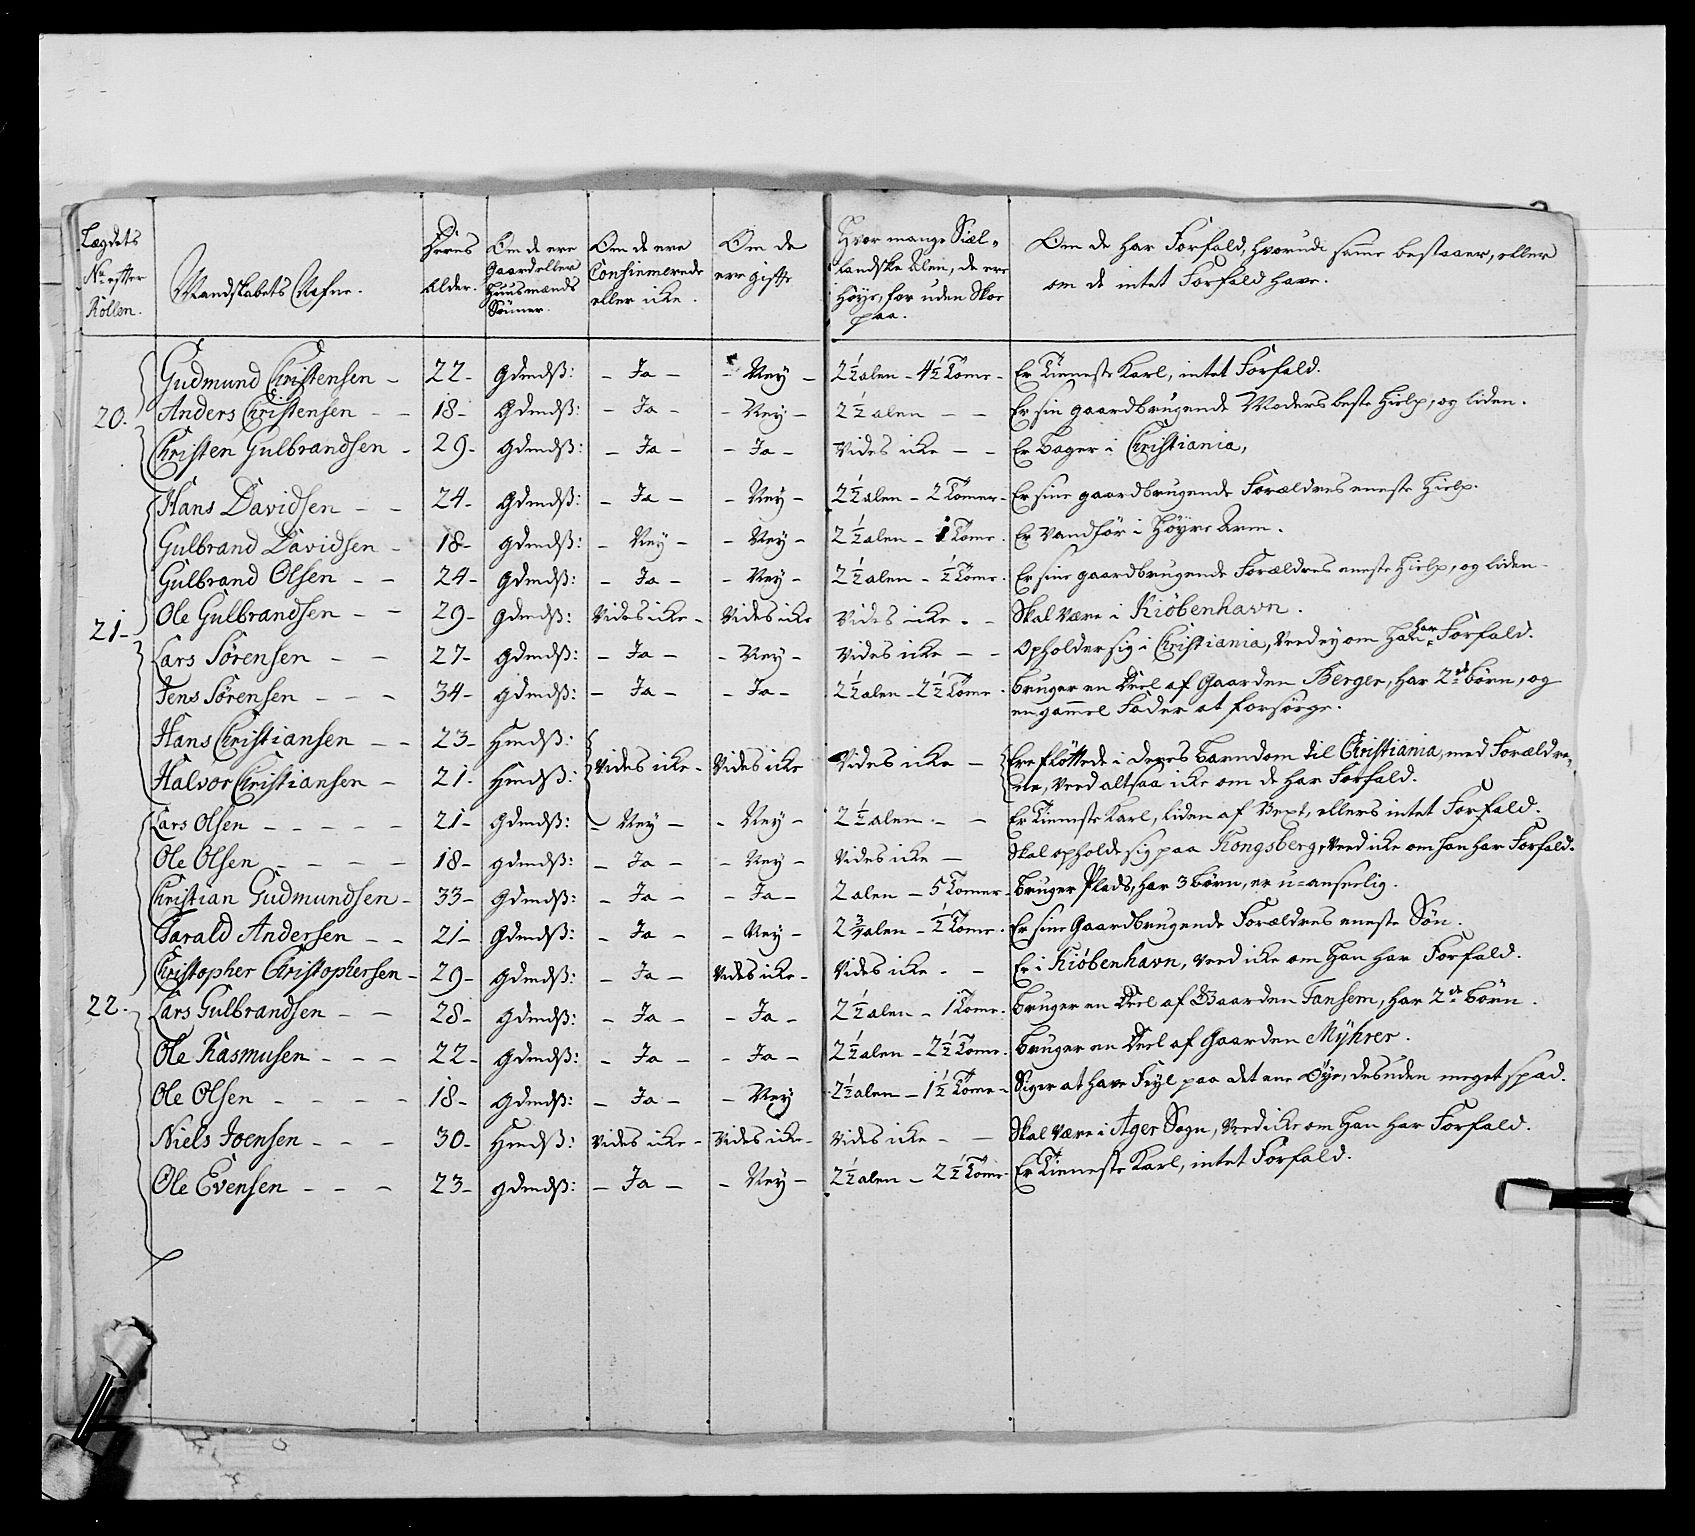 Lægdets No. efter Rollen. | Mandskabets Nafne. | Deres Alder. | Om de ere Gaard eller Huusmænds Sønner. | Om de ere Confirmerede eller icke. | Om de ere gifte | Hvor mange Siællandske Alen, de ere høye, for uden Skoe paa. | Om de har Forfald, hvorudi samme bestaaer, eller om de intet Forfald have.
Gudmund Christensen - | 22- | Gdmdß: | - Ja - | - Ney - | 2½ alen - 4½ Tomr - | Er Tieneste Karl, intet Forfald.
20. Anders Christensen - - | 18- | Gdmdß: | - Ja - | - Ney - | 2½ alen - - | Er sin gaardbrugende Moders beste Hielp, og liden.
Christen Gulbrandsen - | 29- | Gdmdß: | - Ja - | - Ja - | Vides icke - - | Er Bager i Christiania,
Hans Davidsen - - | 24- | Gdmdß: | - Ja - | - Ney - | 2½ alen - 2 Tomer - | Er sine gaardbrugende Forældres eneste Hielp.
Gulbrand Davidsen - | 18- | Gdmdß: | - Ney - | - Ney - | 2½ alen - 1 Tomr. | Er Vandför i Høyre Arm.
Gulbrand Olsen - - | 24- | Gdmdß: | - Ja - | - Ney - | 2½ alen - ½ Tomr. | Er sine gaardbrugende Forældres eneste Hielp, og liden -
21- Ole Gulbrandsen - - | 29- | Gdmdß: | Vides icke - | Vides icke | Vides icke - - | Skal være i Kiöbenhavn.
Lars Sörensen - - | 27- | Gdmdß: | - Ja - | - Ney - | Vides icke - - | Opholder sig i Christiania, Veed ey om han har Forfald.
Jens Sörensen - - - | 34- | Gdmdß: | - Ja - | - Ja - | 2½ alen - 2½ Tomr. | bruger en Deel af Gaarden Berger, har 2de börn, og
en gammel Fader at forsörge.
Hans Christiansen - - | 23- | Hmdß:
Halvor Christiansen - | 21- | Hmdß: | Vides icke - | Vides icke | Vides icke - | Ere flöttede i deres barndom til Christiania, med Forældre-
ne, veed altsaa icke om de har Forfald.
Lars Olsen - - - - - | 21- | Gdmdß: | - Ney - | - Ney - | 2½ alen - - | Er Tieneste Karl, liden af Vext, ellers intet Forfald.
Ole Olsen - - - - | 18- | gdmdß: | - Ja - | - Ney - | Vides icke - | Skal opholde sig paa Kongsberg, Veed icke om han har Forfald.
Christian Gudmundsen - | 33- | Gdmdß: | - Ja - | - Ja - | 2 alen - 5 Tomer - | bruger Plads, har 3 börn, er u=anseelig.
Harald Andersen - - | 21- | Gdmdß: | - Ja - | - Ney - | 2¾ alen - ½ Tomr. | Er sine Gaardbrugende Forældres eneste Sön.
Christopher Christophersen - | 29- | Gdmdß: | - Ja - | Vides icke - | Vides icke - - | Er i Kiöbenhavn, veed icke om Han har Forfald.
22. Lars Gulbrandsen - - | 28- | Gdmdß: | - Ja - | - Ja - | 2½ alen - 1 Tomr. | bruger en Deel af Gaarden Tansem, har 2de börn.
Ole Rasmusen - - - | 22- | Gdmdß: | - Ja - | - Ja - | 2½ alen - 2½ Tomr. | bruger en Deel af Gaarden Myhrer.
Ole Olsen - - - - | 18- | Gdmdß: | - Ja - | - Ney | 2½ alen - 1½ Tomr - | Siger at have Feyl paa det ene Øye, desuden meget spæd.
Niels Joensen - - - | 30- | Hmdß: | Vides icke - | Vides icke - | Vides icke - - | Skal være i Ager Sogn, Veed icke om Han har Forfald.
Ole Evensen - - - | 23- | gdmdß: | - Ja - | - Ney - | 2½ alen - 2½ Tomr | Er Tieneste Karl, intet Forfald.